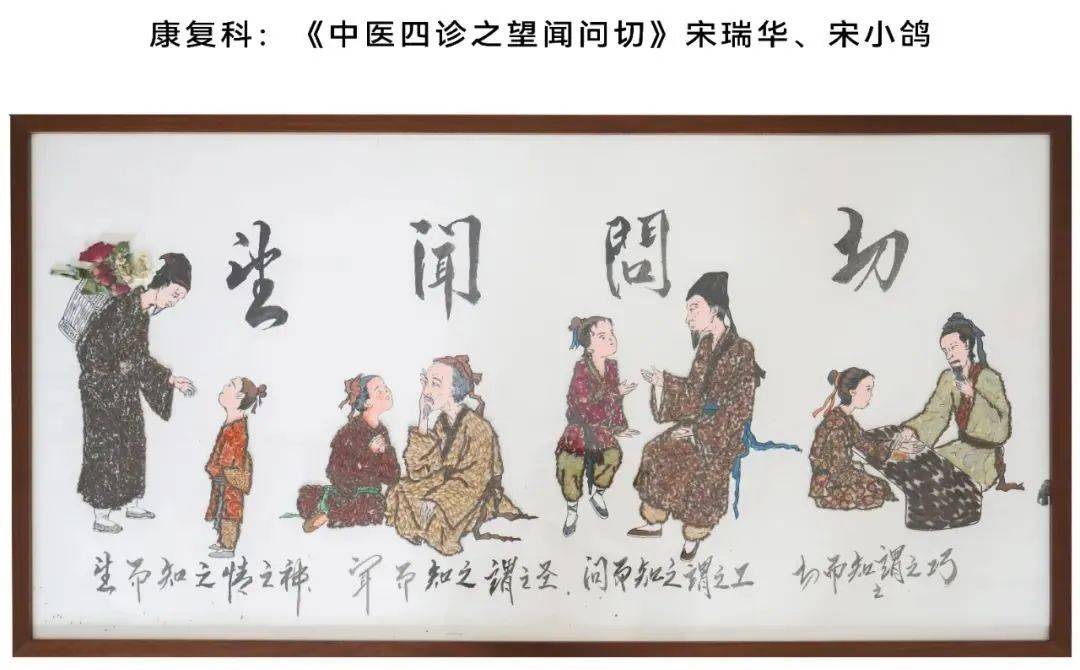 康复科：《中医四诊之望闻问切》宋瑞华、宋小鸽
望 聞 問 切
望而知之情之神、闻而知之謂之圣.问而知之謂之工 切而知之謂之巧